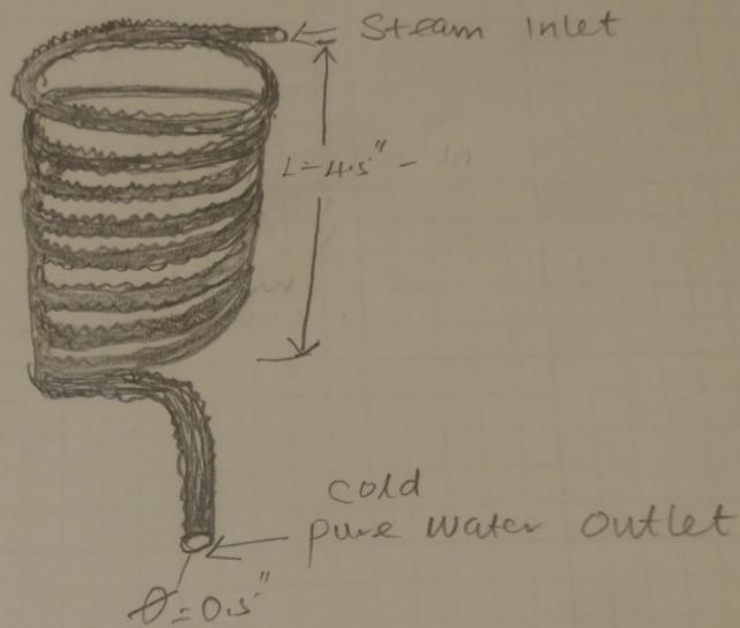 Steam Inlet
L=4.5"
cold
pure water outlet
Ø=0.5"